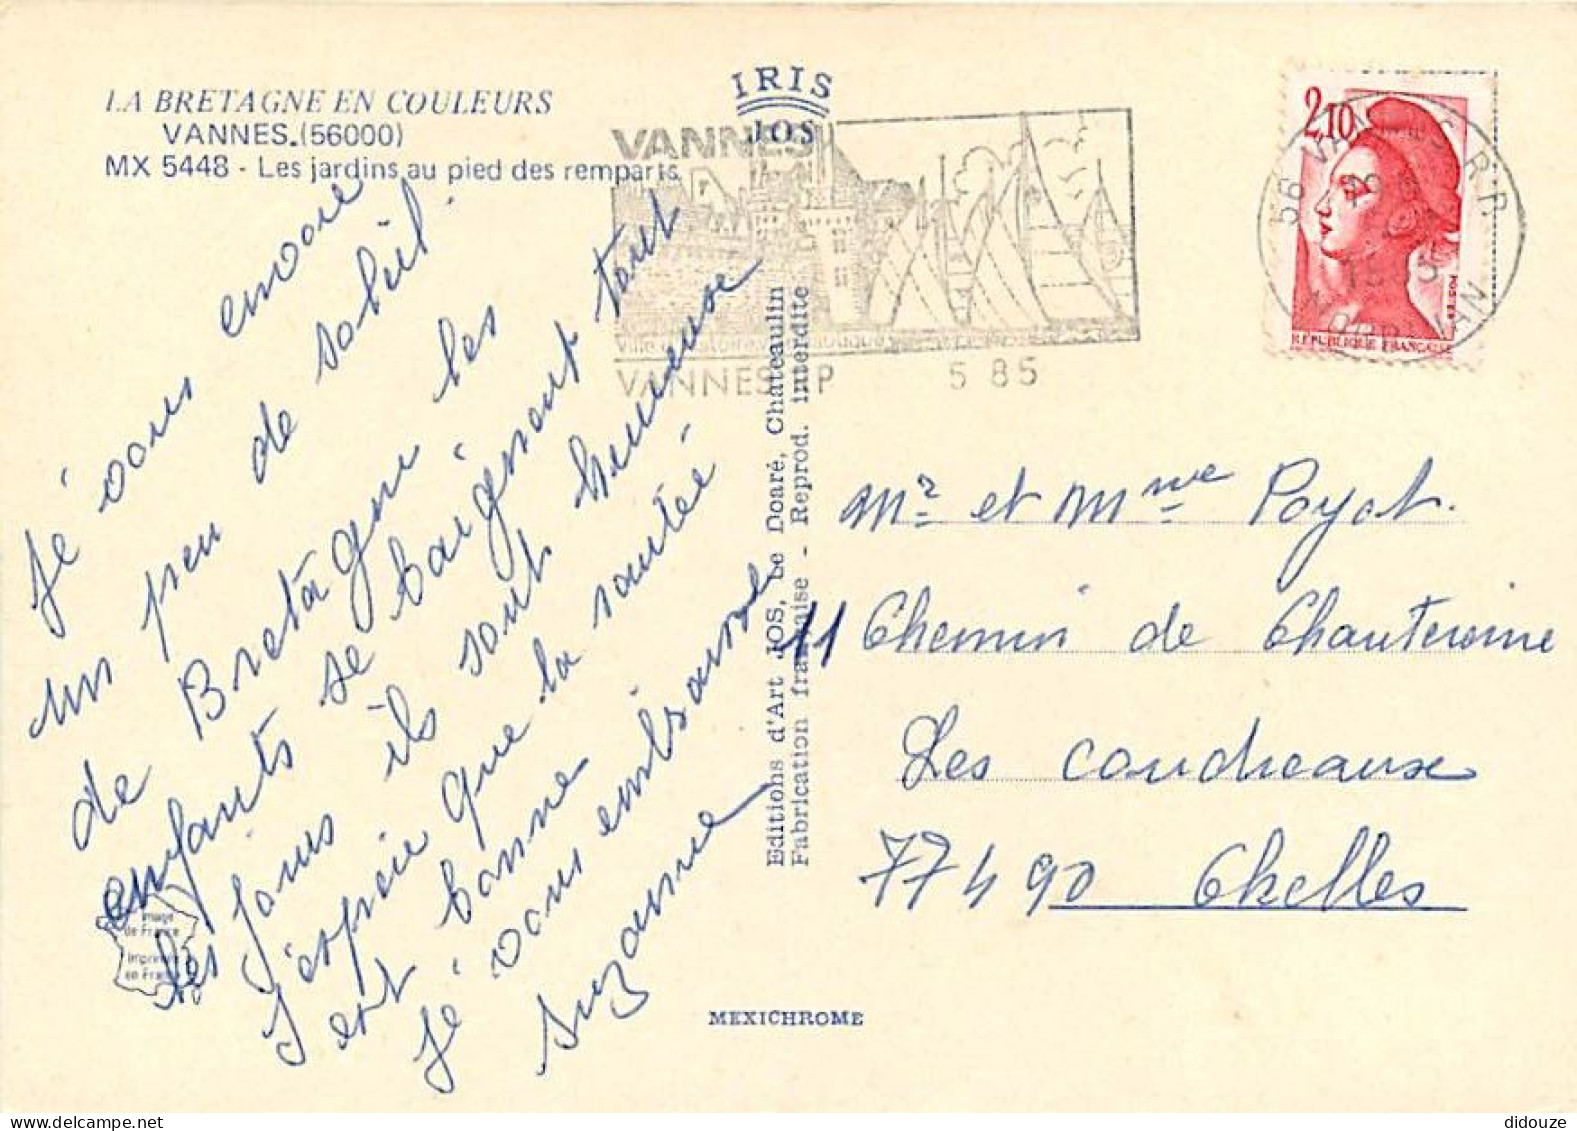 LA BRETAGNE EN COULEURS
VANNES.(56000)
MX 5448 - Les jardins au pied des remparts
IRIS
JOS
VANNES
VANNES RP 5 85
56 VANNES R.P.
MORBIHAN
2,10
REPUBLIQUE FRANÇAISE
Je vous envoie
un peu de soleil.
de Bretagne les
enfants se baignent tout
les jours ils sont heureuse
J'espèie que la santée
est bonne
Je vous embrasse
Suzanne
Editions d'Art JOS, Le Doaré, Chateaulin
Fabrication française - Reprod. interdite
Mr et Mme Poyot.
11 Chemin de Chantereine
Les coudreaux
77490 Chelles
Image
de France
Imprimée
en France
MEXICHROME
didouze